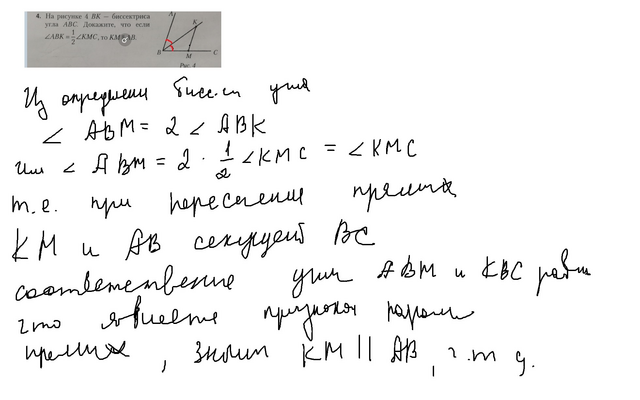 4. На рисунке 4 BK — биссектриса
угла ABC. Докажите, что если
∠ABK = 1/2 ∠KMC, то KM ∥ AB.
A
K
B
M
C
Рис. 4
Из определения биссек угла
∠ ABM = 2 ∠ ABK
или ∠ ABM = 2 · 1/2 ∠KMC = ∠KMC
т.е. при пересечении прямых
KM и AB секущей BC
соответственные углы ABM и KBC равны
что является признаком паралл
прямых, значит KM || AB, ч.т.д.